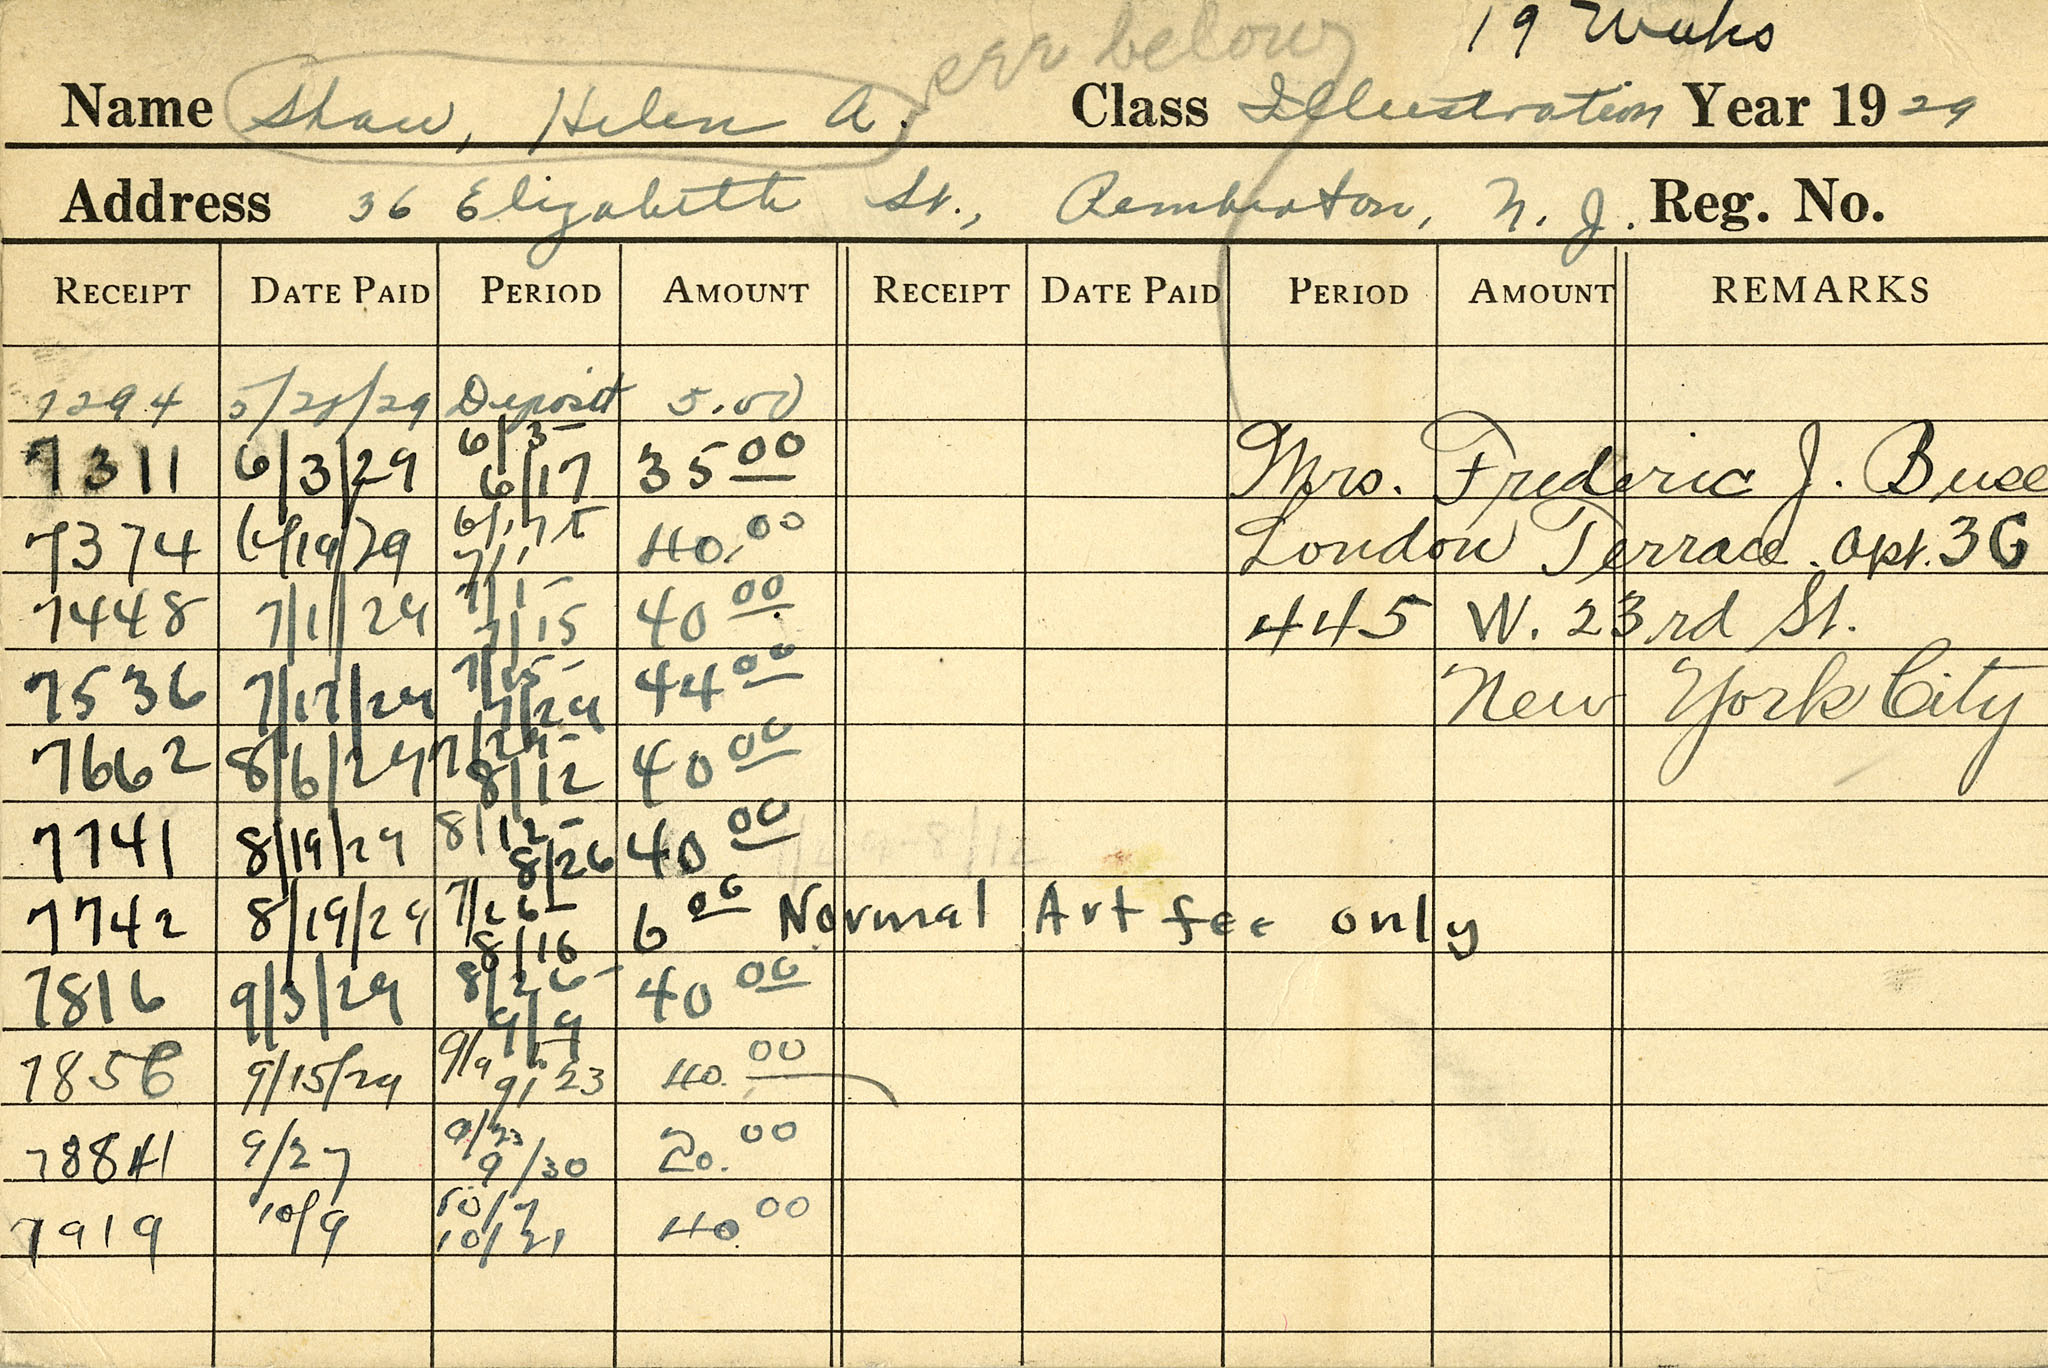 19 Weeks
see below
Name Shaw, Helen A. Class Illustration Year 1929
Address 36 Elizabeth St., Pemberton, N. J. Reg. No.
RECEIPT DATE PAID PERIOD AMOUNT RECEIPT DATE PAID PERIOD AMOUNT REMARKS
7294 5/28/29 Deposit 5.00
7311 6/3/29 6/3- 6/17 35 00 Mrs. Frederic J. Buse
7374 6/19/29 6/17 - 7/1 40.00 London Terrace. Apt. 3G
7448 7/1/29 7/1- 7/15 40 00 445 W. 23rd St.
7536 7/17/29 7/15- 7/29 44 00 New York City
7662 8/6/29 7/29- 8/12 40 00
7741 8/19/29 8/12- 8/26 40 00 7/29-8/12
7742 8/19/29 7/26- 8/16 6 00 Normal Art fee only
7816 9/3/29 8/26- 9/9 40 00
7856 9/15/29 9/9 9/23 40.00
7884 9/27 9/23 9/30 20.00
7919 10/9 10/7 10/21 40.00